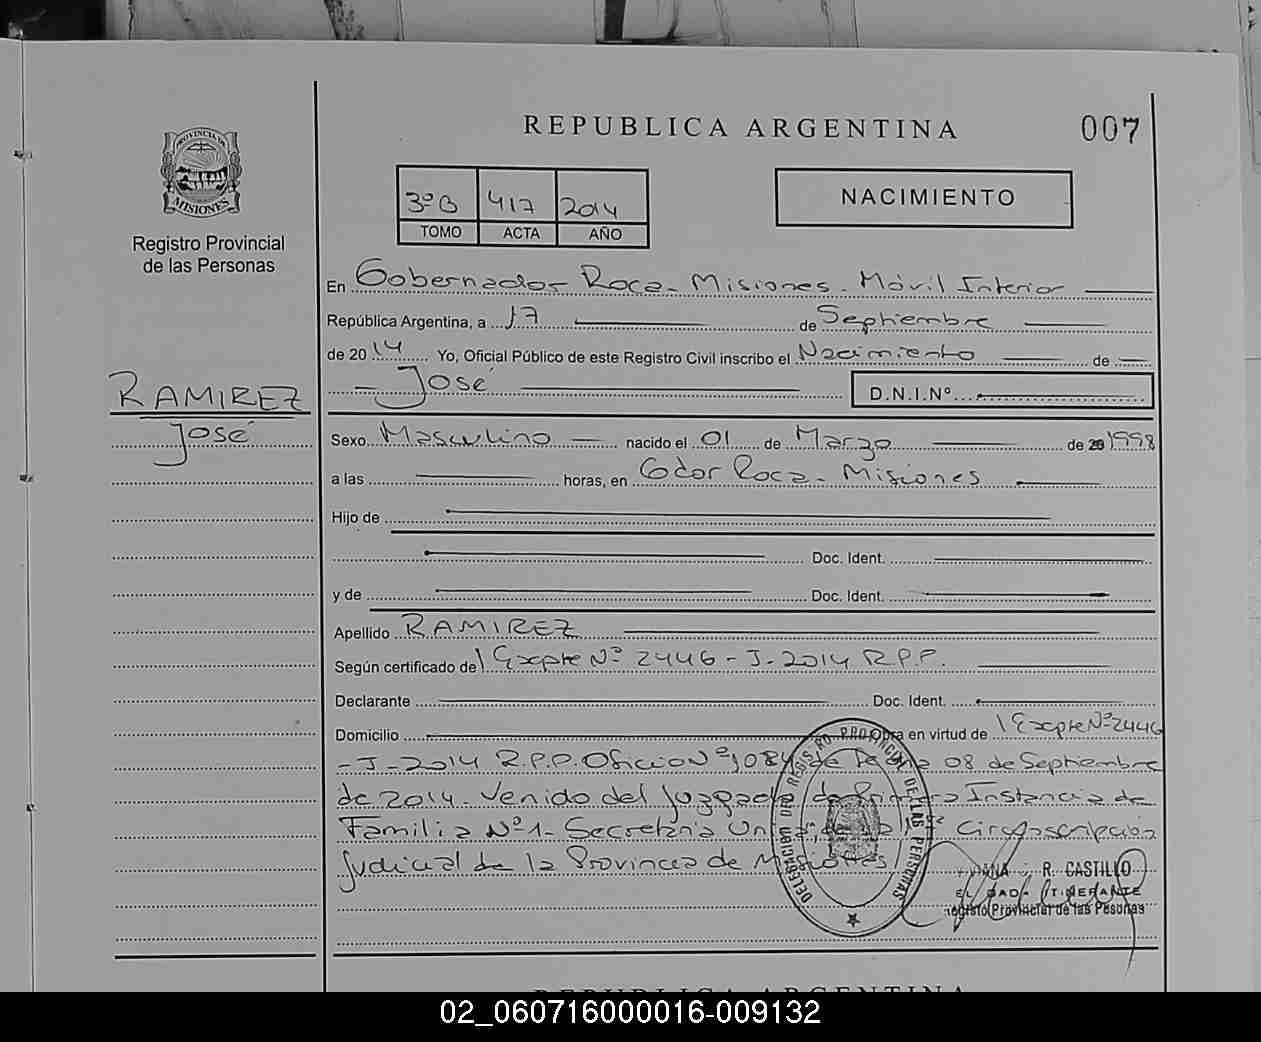 REPUBLICA ARGENTINA
007
PROVINCIA DE
MISIONES
Registro Provincial
de las Personas
3ºB 417 2014
TOMO ACTA AÑO
NACIMIENTO
En Gobernador Roca - Misiones - Móvil Interior
República Argentina, a 17 de Septiembre
de 2014 Yo, Oficial Público de este Registro Civil inscribo el Nacimiento de
José
D.N.I.Nº
RAMIREZ
José
Sexo Masculino nacido el 01 de Marzo de 1998
a las horas, en Gdor Roca - Misiones
Hijo de
Doc. Ident.
y de Doc. Ident.
Apellido RAMIREZ
Según certificado de Expte Nº 2446 - J - 2014 R.P.P.
Declarante Doc. Ident.
Domicilio Obra en virtud de Expte Nº 2446
- J - 2014 R.P.P. Oficio Nº 1084 de fecha 08 de Septiembre
de 2014 - Venido del Juzgado de Primera Instancia de
Familia Nº 1 - Secretaria Unica, de la 1ª Circunscripción
Judicial de la Provincia de Misiones
DELEGACION DEL REGISTRO PROVINCIAL DE LAS PERSONAS
R. CASTILLO
ITINERANTE
Registro Provincial de las Pesonas
REPUBLICA ARGENTINA
02_060716000016-009132